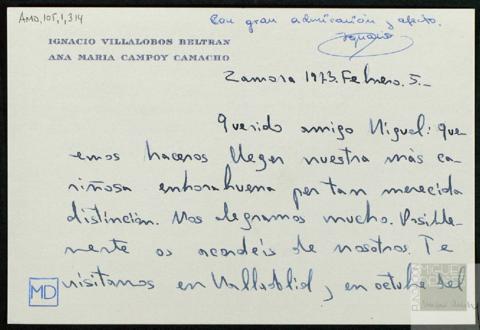 AMD,105,1,314
Con gran admiración y afecto.
Ignacio
IGNACIO VILLALOBOS BELTRAN
ANA MARIA CAMPOY CAMACHO
Zamora 1973. Febrero. 5.-
Querido amigo Miguel: Que
emos haceros llegar nuestra más ca
riñosa enhorabuena por tan merecida
distinción. Nos alegramos mucho. Posible
mente os acordéis de nosotros. Te
visitamos en Valladolid y en octubre del
MD